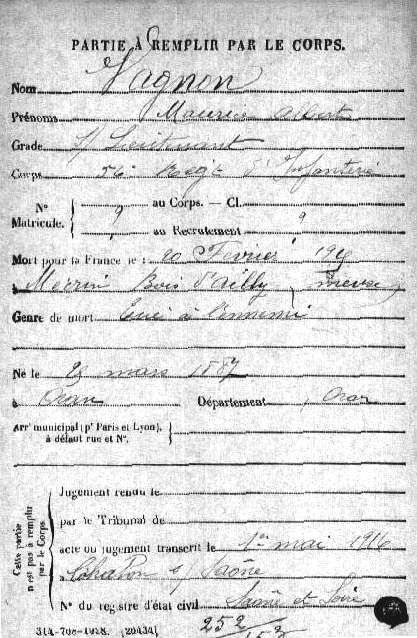 PARTIE À REMPLIR PAR LE CORPS.
Nom Vagnon
Prénoms Maurice Albert
Grade S/Lieutenant
Corps 56e Régt d'Infanterie
N° 9 au Corps. — Cl.
Matricule. au Recrutement 9
Mort pour la France le : 20 Février 191
à Bois d'Ailly (Meuse)
Genre de mort Tué à l'ennemi
Né le 29 mars 1887
à Oran Département Oran
Arr' municipal (p' Paris et Lyon), à défaut rue et N°.
Cette partie n'est pas à remplir par le Corps.
Jugement rendu le
par le Tribunal de
acte ou jugement transcrit le 1er mai 1916
à Chalon s/ Saône
N° du registre d'état civil Saône et Loire
252/
314-708-1928. [20434]